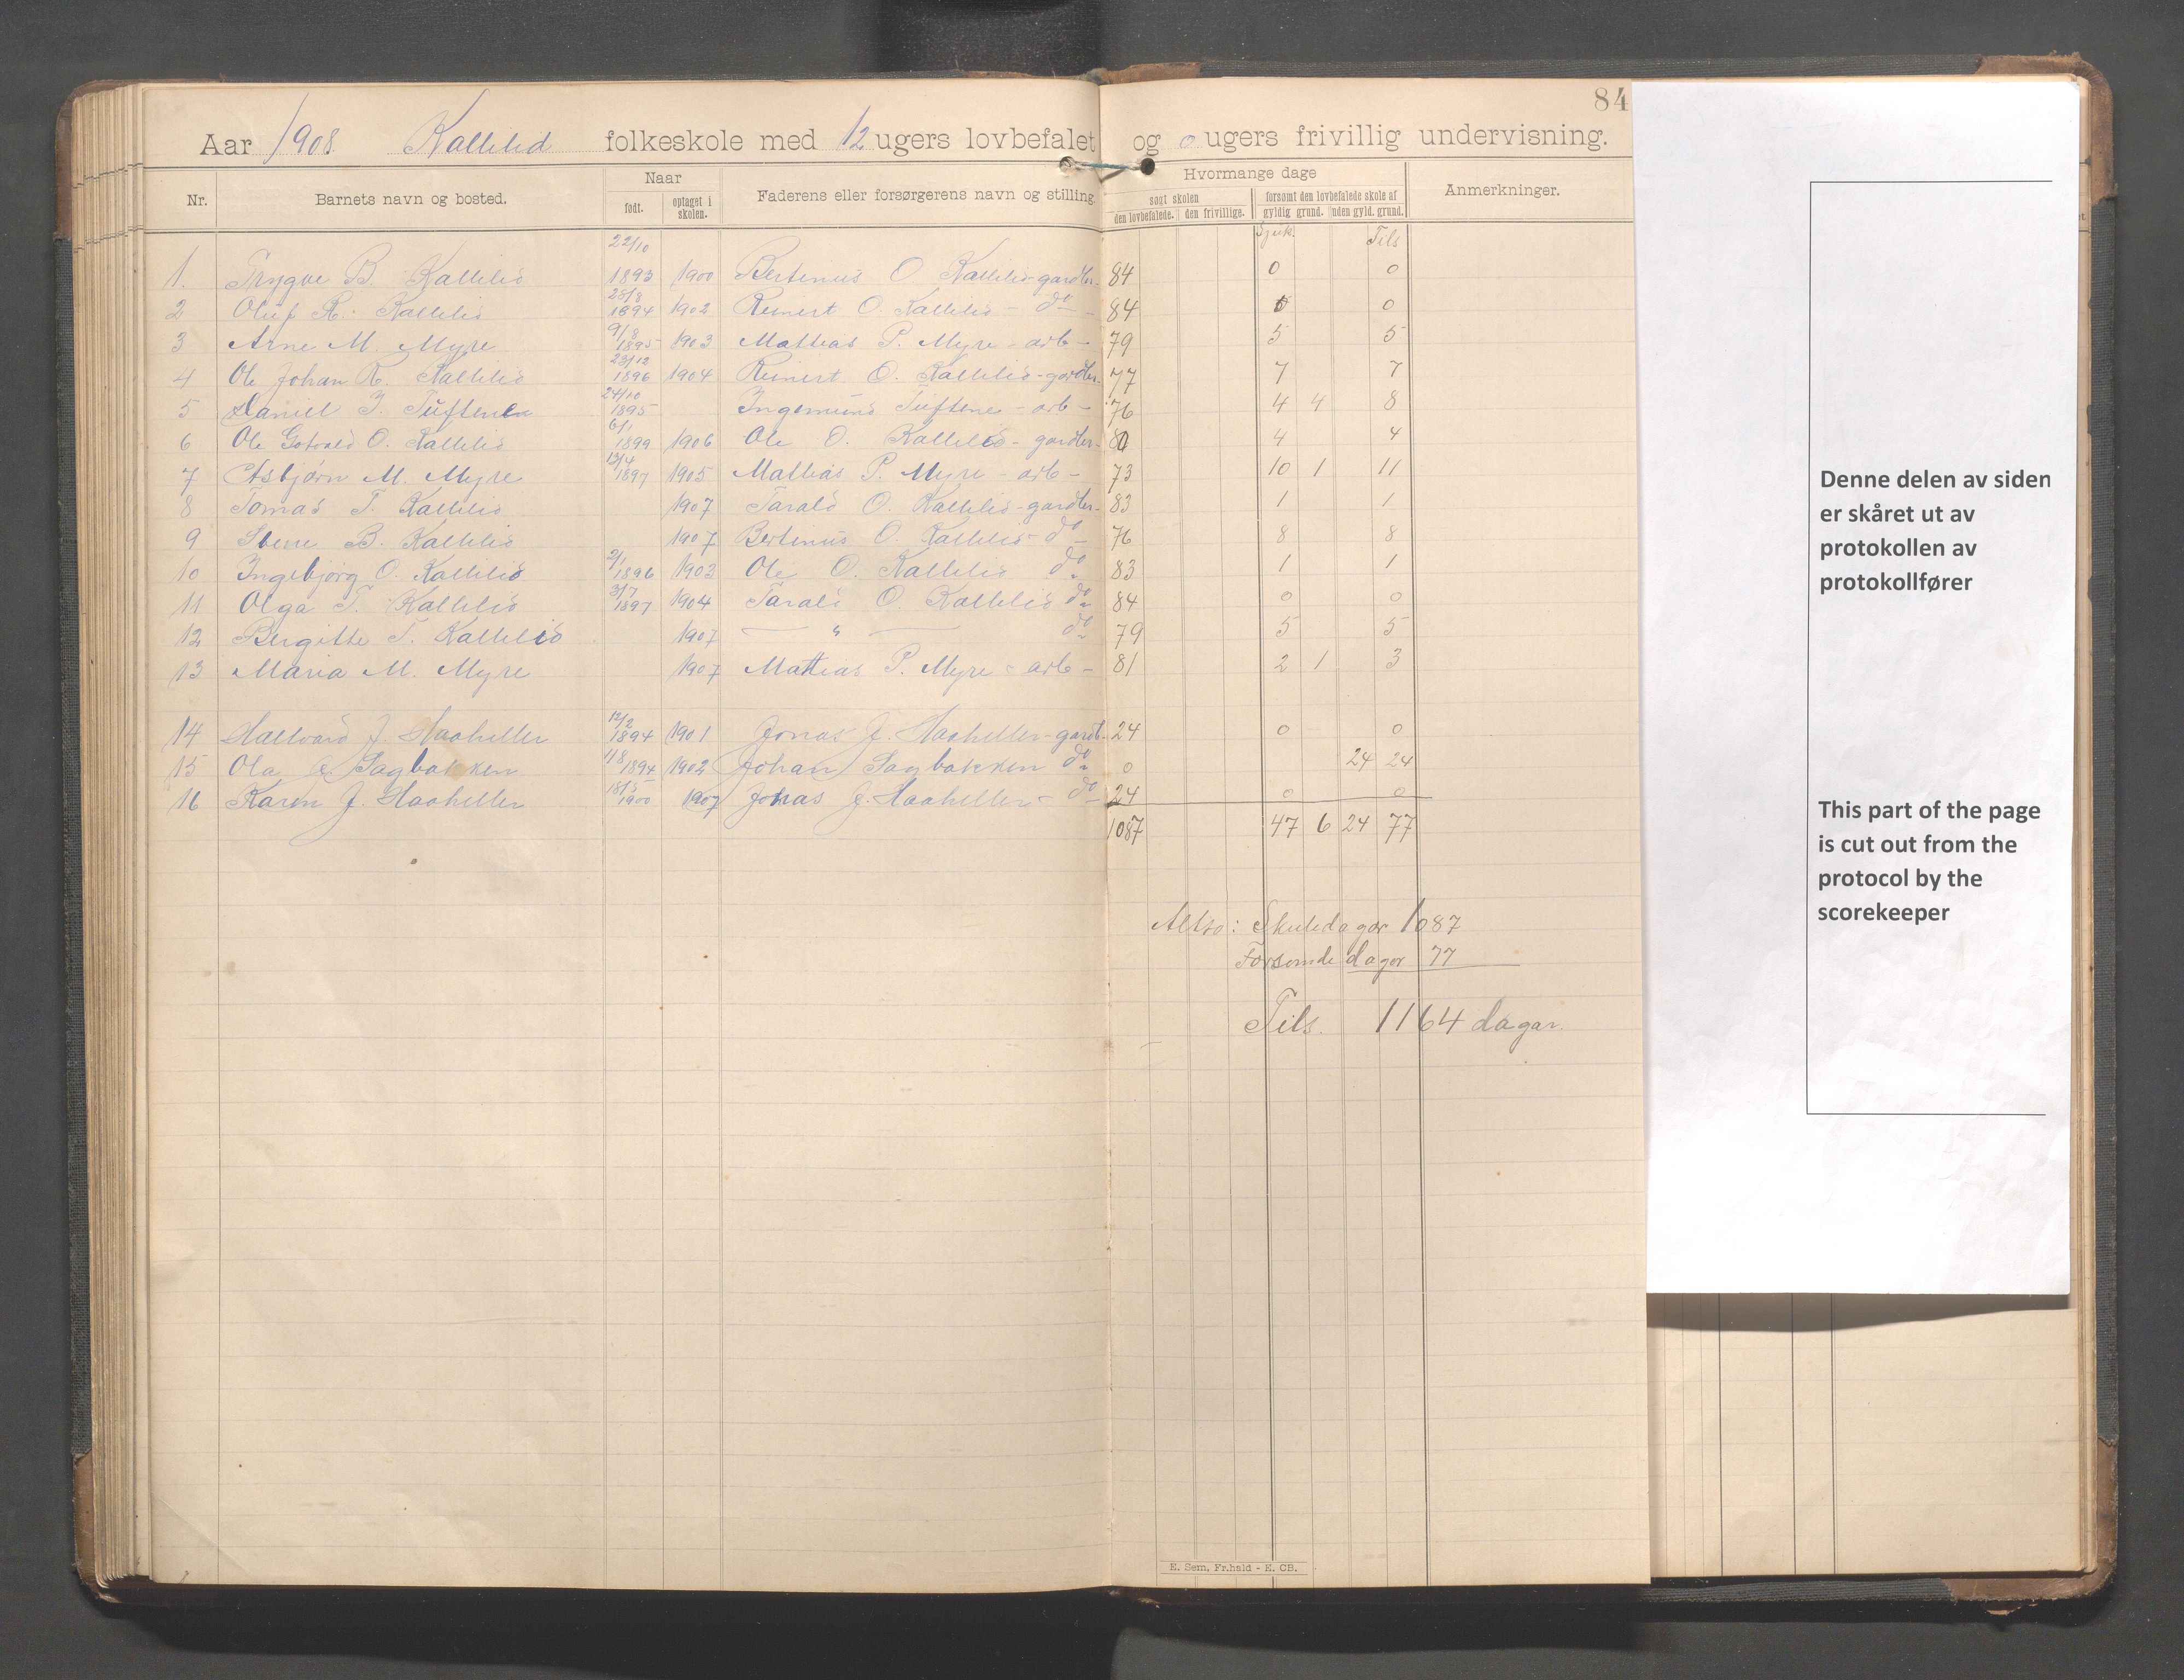 84
Aar 1908 Kallelid folkeskole med 12 ugers lovbefalet og 0 ugers frivillig undervisning.
Nr. Barnets navn og bosted. Naar født. optaget i skolen. Faderens eller forsørgerens navn og stilling. Hvormange dage søgt skolen den lovbefalede. den frivillige. forsømt den lovbefalede skole af gyldig grund. uden gyld. grund. Anmerkninger.
Sjuk. Tils
1. Trygve B. Kallelid 22/10 1893 1900 Bertinius O. Kallelid - gardbr. 84 0 0
2 Oluf R. Kallelid 28/8 1894 1902 Reinert O. Kallelid - do - 84 0 0
3 Arne M. Myre 9/8 1895 1903 Mathias P. Myre - arb - 79 5 5
4 Ole Johan R. Kallelid 23/12 1896 1904 Reinert O. Kallelid - gardbr. 77 7 7
5 Daniel I. Tuftene 24/10 1895 Ingemund Tuftene - arb - 76 4 4 8
6 Ole Gotvald O. Kallelid 6/1 1899 1906 Ole O. Kallelid - gardbr. 80 4 4
7 Asbjørn M. Myre 13/4 1897 1905 Mathias P. Myre - arb - 73 10 1 11
8 Tomas T. Kallelid 1907 Tarald O. Kallelid - gardbr. 83 1 1
9 B. Kallelid 1907 Bertinius O. Kallelid - do - 76 8 8
10 Ingebjørg O. Kallelid 2/1 1896 1903 Ole O. Kallelid do 83 1 1
11 Olga T. Kallelid 3/7 1897 1904 Tarald O. Kallelid do 84 0 0
12 Bergitte T. Kallelid 1907 — " — do 79 5 5
13 Maria M. Myre 1907 Mathias P. Myre - arb - 81 2 1 3
14 Hallvard J. Haaheller 12/2 1894 1901 Jonas J. Haaheller - gardb. 24 0 0
15 Ola J. Sagbakken 11/8 1894 1902 Johan Sagbakken do 0 24 24
16 Karen J. Haaheller 18/5 1900 1907 Jonas J. Haaheller - do - 24 0 0
1087 47 6 24 77
Altso: Skuledagar 1087
Forsømde dagar 77
Tils. 1164 dagar.
E. Sem, Fr.hald - E. CB.
Denne delen av siden
er skåret ut av
protokollen av
protokollfører
This part of the page
is cut out from the
protocol by the
scorekeeper